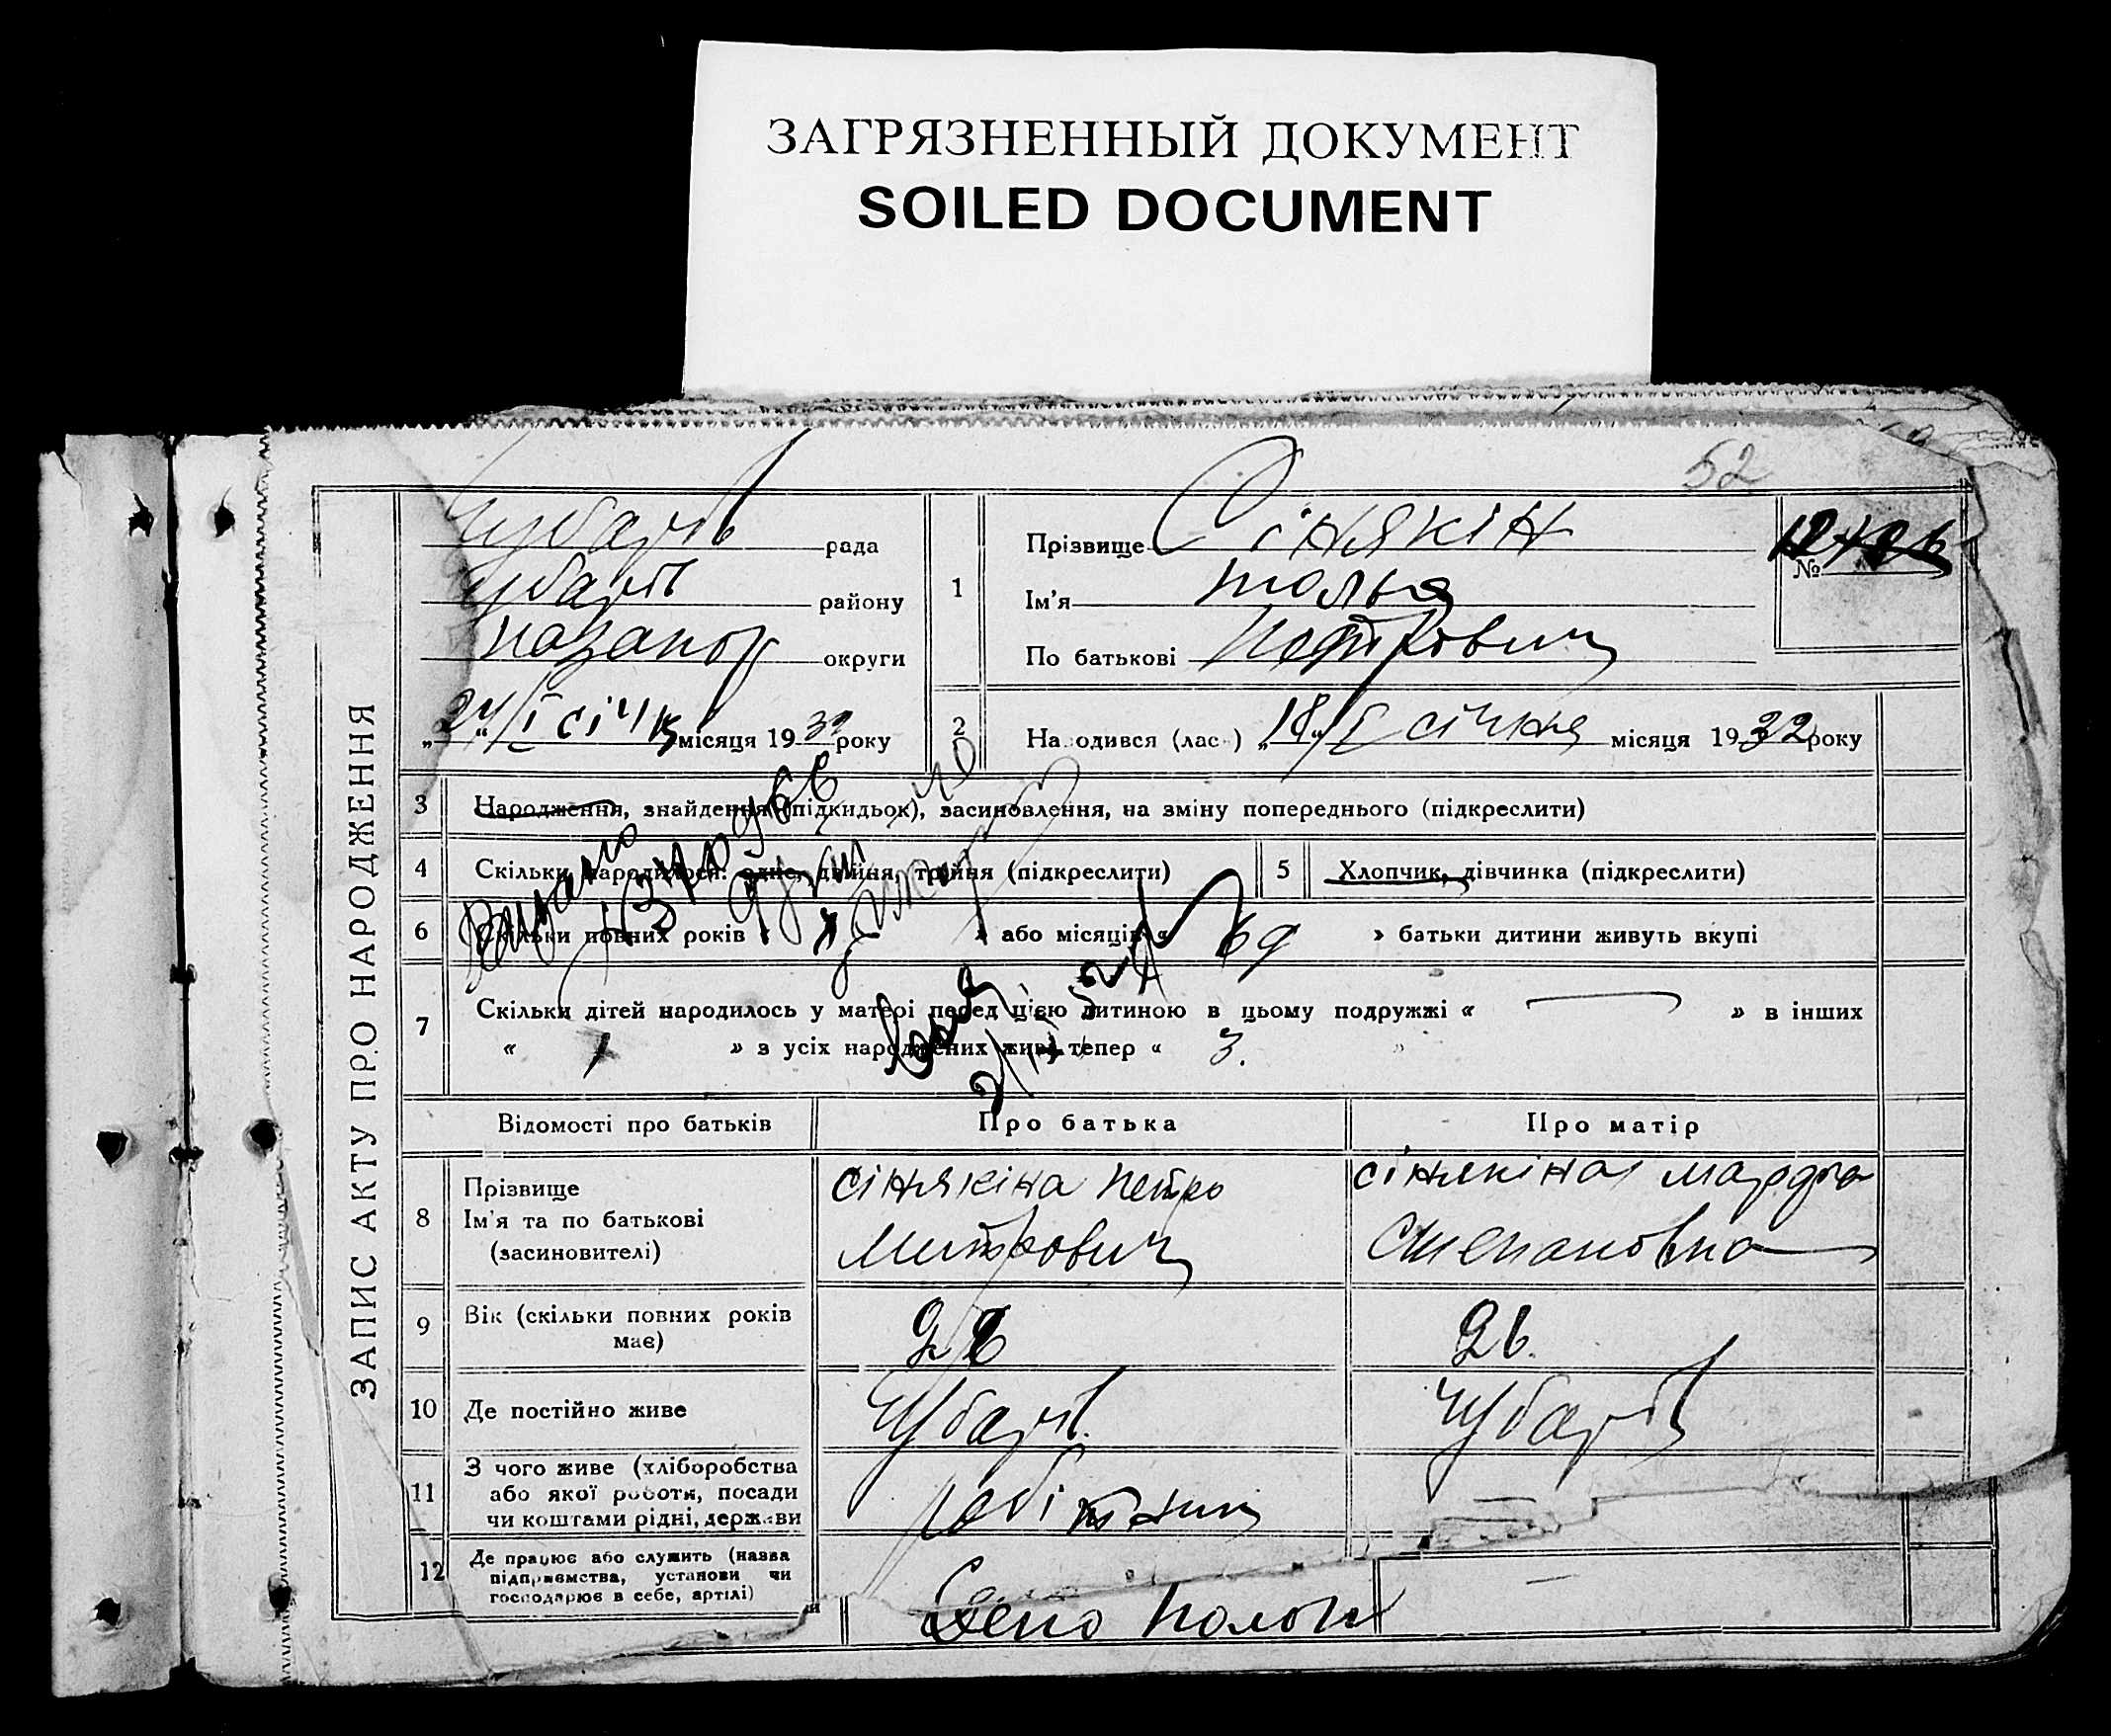 ЗАГРЯЗНЕННЫЙ ДОКУМЕНТ
SOILED DOCUMENT
52
ЗАПИС АКТУ ПРО НАРОДЖЕННЯ
Чубарів рада
Чубарів району
округи
„24“/I січня місяця 1932 року
1
Прізвище Сінякін
Ім'я Толья
По батькові Петрович
№
2 Народився (лась) „18“/I січня місяця 1932 року
3 Народження, знайдення (підкидьок), засиновлення, на зміну попереднього (підкреслити)
4 Скільки народилося: одне, двійня, трійня (підкреслити)
5 Хлопчик, дівчинка (підкреслити)
Видано
6 Скільки повних років « » або місяців « » батьки дитини живуть вкупі
7 Скільки дітей народилось у матері перед цією дитиною в цьому подружжі « — » в інших
« » з усіх народжених живі тепер « 3. »
Відомості про батьків Про батька Про матір
8 Прізвище
Ім'я та по батькові
(засиновителі)
Сінякіна Петро
Митрович
Сінякіна Марфа
Степановна
9 Вік (скільки повних років
має)
26.
10 Де постійно живе Чубарів. Чубарів
11 З чого живе (хліборобства
або якої роботи, посади
чи коштами рідні, держави
робітник
—
12 Де працює або служить (назва
підприємства, установи чи
господарює в себе, артілі)
Депо Пологи
—